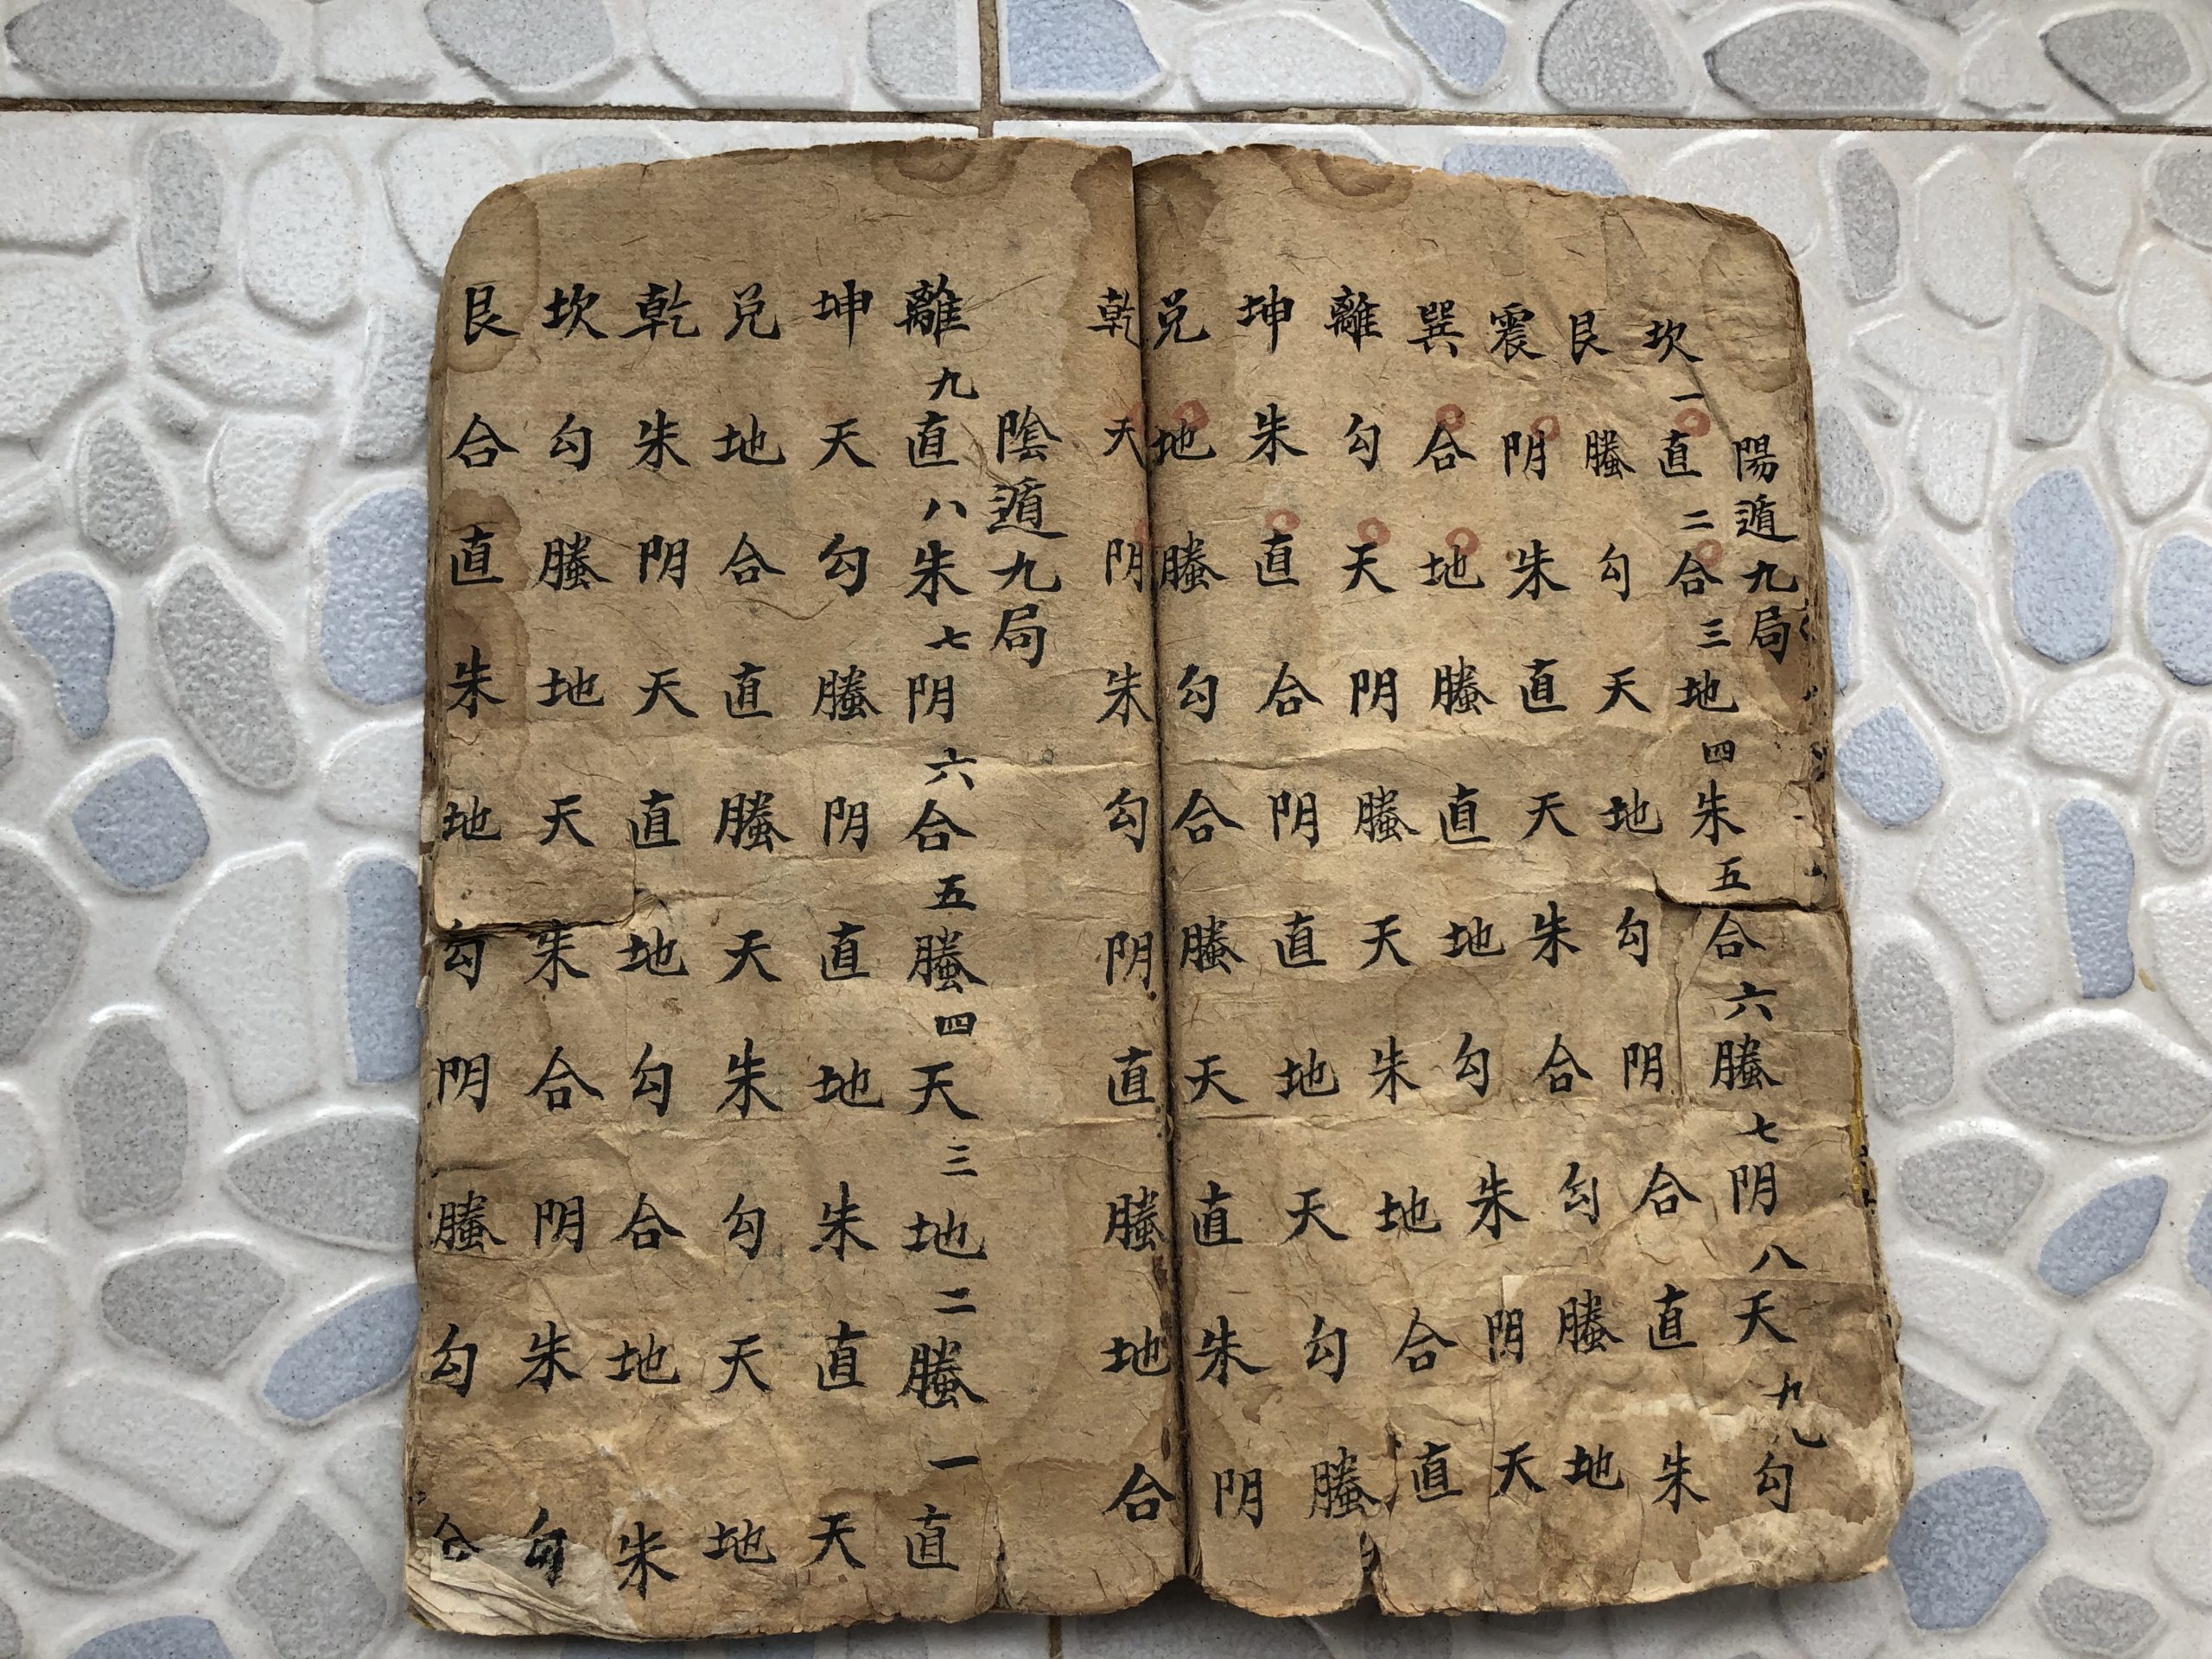 陽遁九局
坎一直二合三地四朱五合六螣七阴八天九勾
艮螣勾天地勾阴合直朱
震阴朱直天朱合勾螣地
巽合地螣直地勾朱阴天
離勾天阴螣天朱地合直
坤朱直合阴直地天勾螣
兑地螣勾合螣天直朱阴
乾天阴朱勾阴直螣地合
陰遁九局
離九直八朱七阴六合五螣四天三地二螣一直
坤天勾螣阴直地朱直天
兑地合直螣天朱勾天地
乾朱阴天直地勾合地朱
坎勾螣地天朱合阴朱勾
艮合直朱地勾阴螣勾合